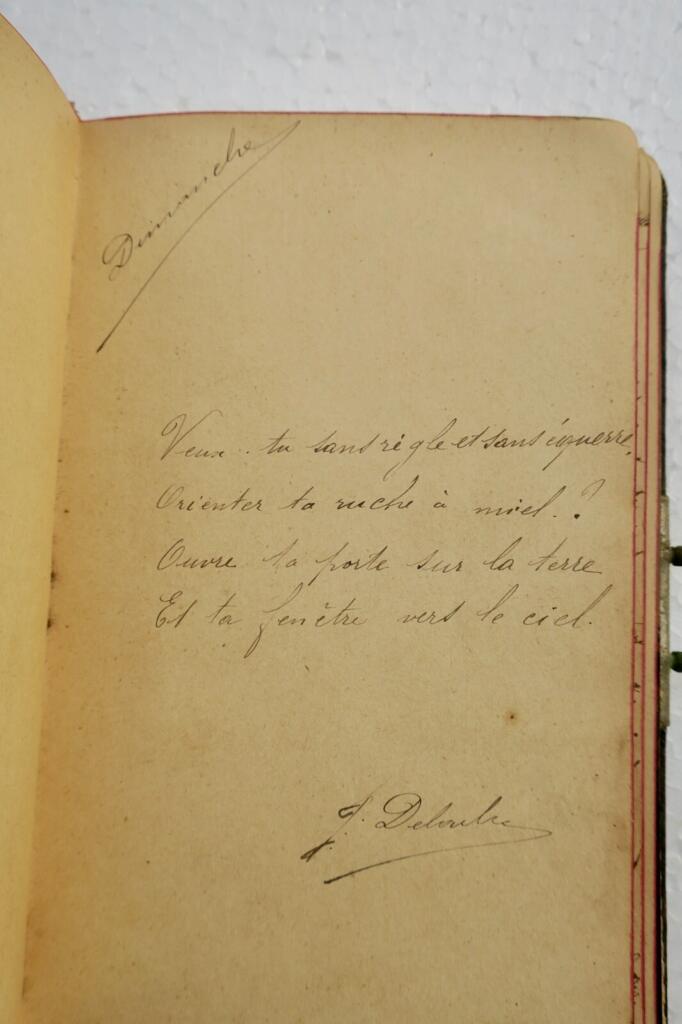 Dimanche
Veux-tu sans règle et sans équerre,
Orienter ta ruche à miel. ?
Ouvre ta porte sur la terre
Et ta fenêtre vers le ciel.
J.